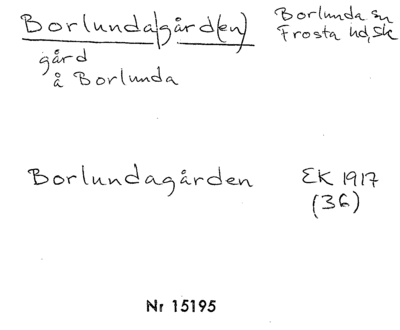 Borlunda|gård(en)
Borlunda sn
Frosta hd, Sk
gård
å Borlunda
Borlundagården
EK 1917
(36)
Nr 15195